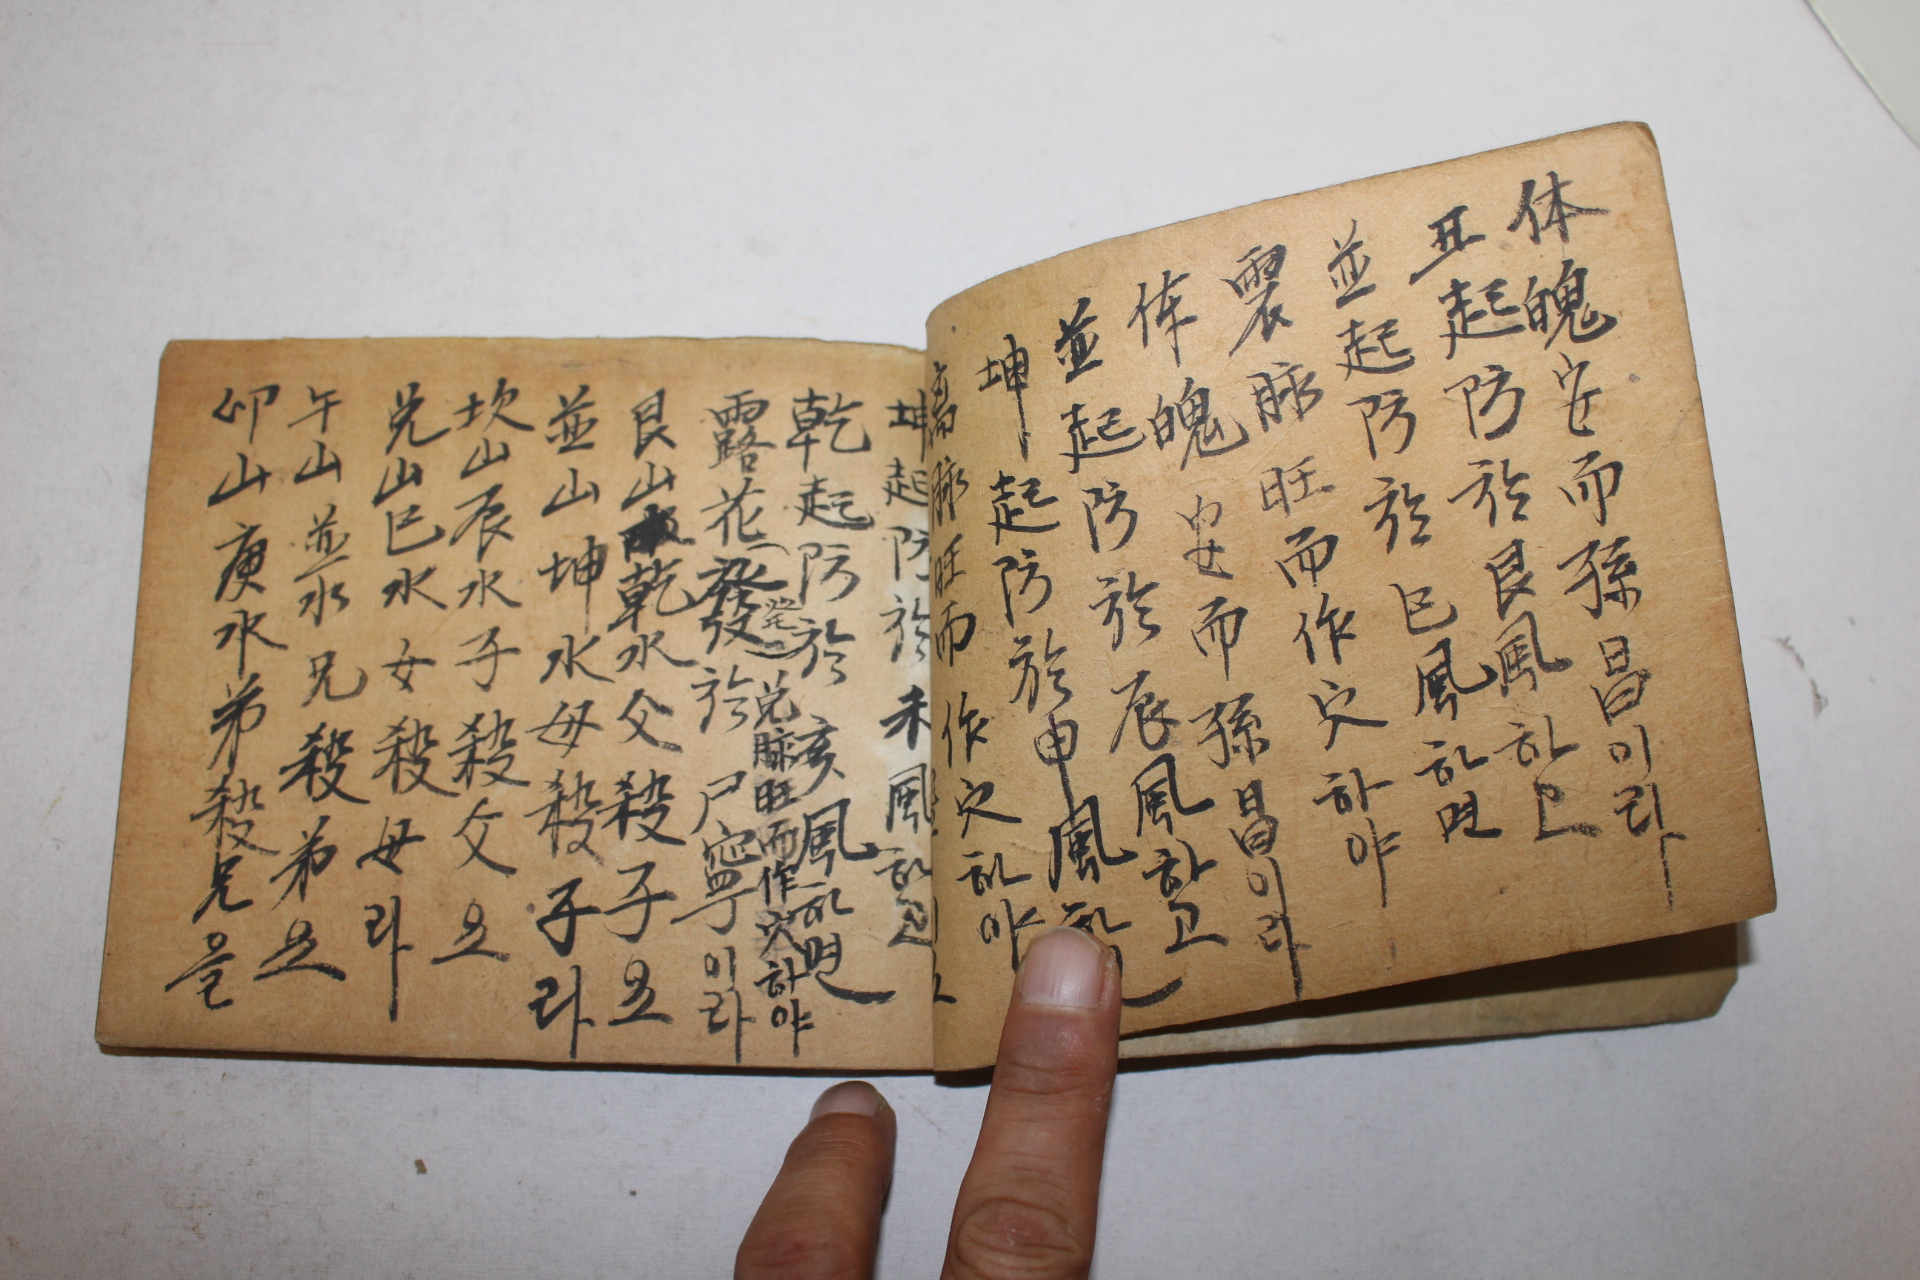 体魄安而孫昌이라
丑起防於艮風하고
並起防於巳風하면
震脉旺而作穴하야
体魄安而孫昌이라
並起防於辰風하고
坤起防於申風
离脉旺而作穴하야
坤起防於未風하고
乾起防於亥風하면
兌脉旺而作穴하야
露花發於尸寧이라
艮山乾水父殺子요
並山坤水母殺子라
坎山辰水子殺父요
兌山巳水女殺母라
午山並水兄殺弟요
卯山庚水弟殺兄을